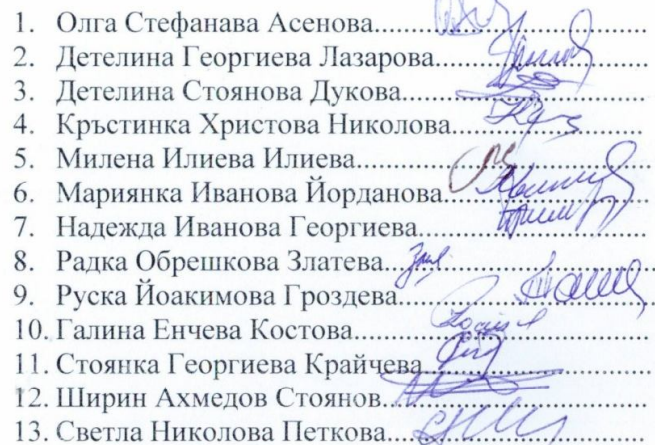 1. Олга Стефанава Асенова
2. Детелина Георгиева Лазарова
3. Детелина Стоянова Дукова
4. Кръстинка Христова Николова
5. Милена Илиева Илиева
6. Мариянка Иванова Йорданова
7. Надежда Иванова Георгиева
8. Радка Обрешкова Златева
9. Руска Йоакимова Гроздева
10. Галина Енчева Костова
11. Стоянка Георгиева Крайчева
12. Ширин Ахмедов Стоянов
13. Светла Николова Петкова